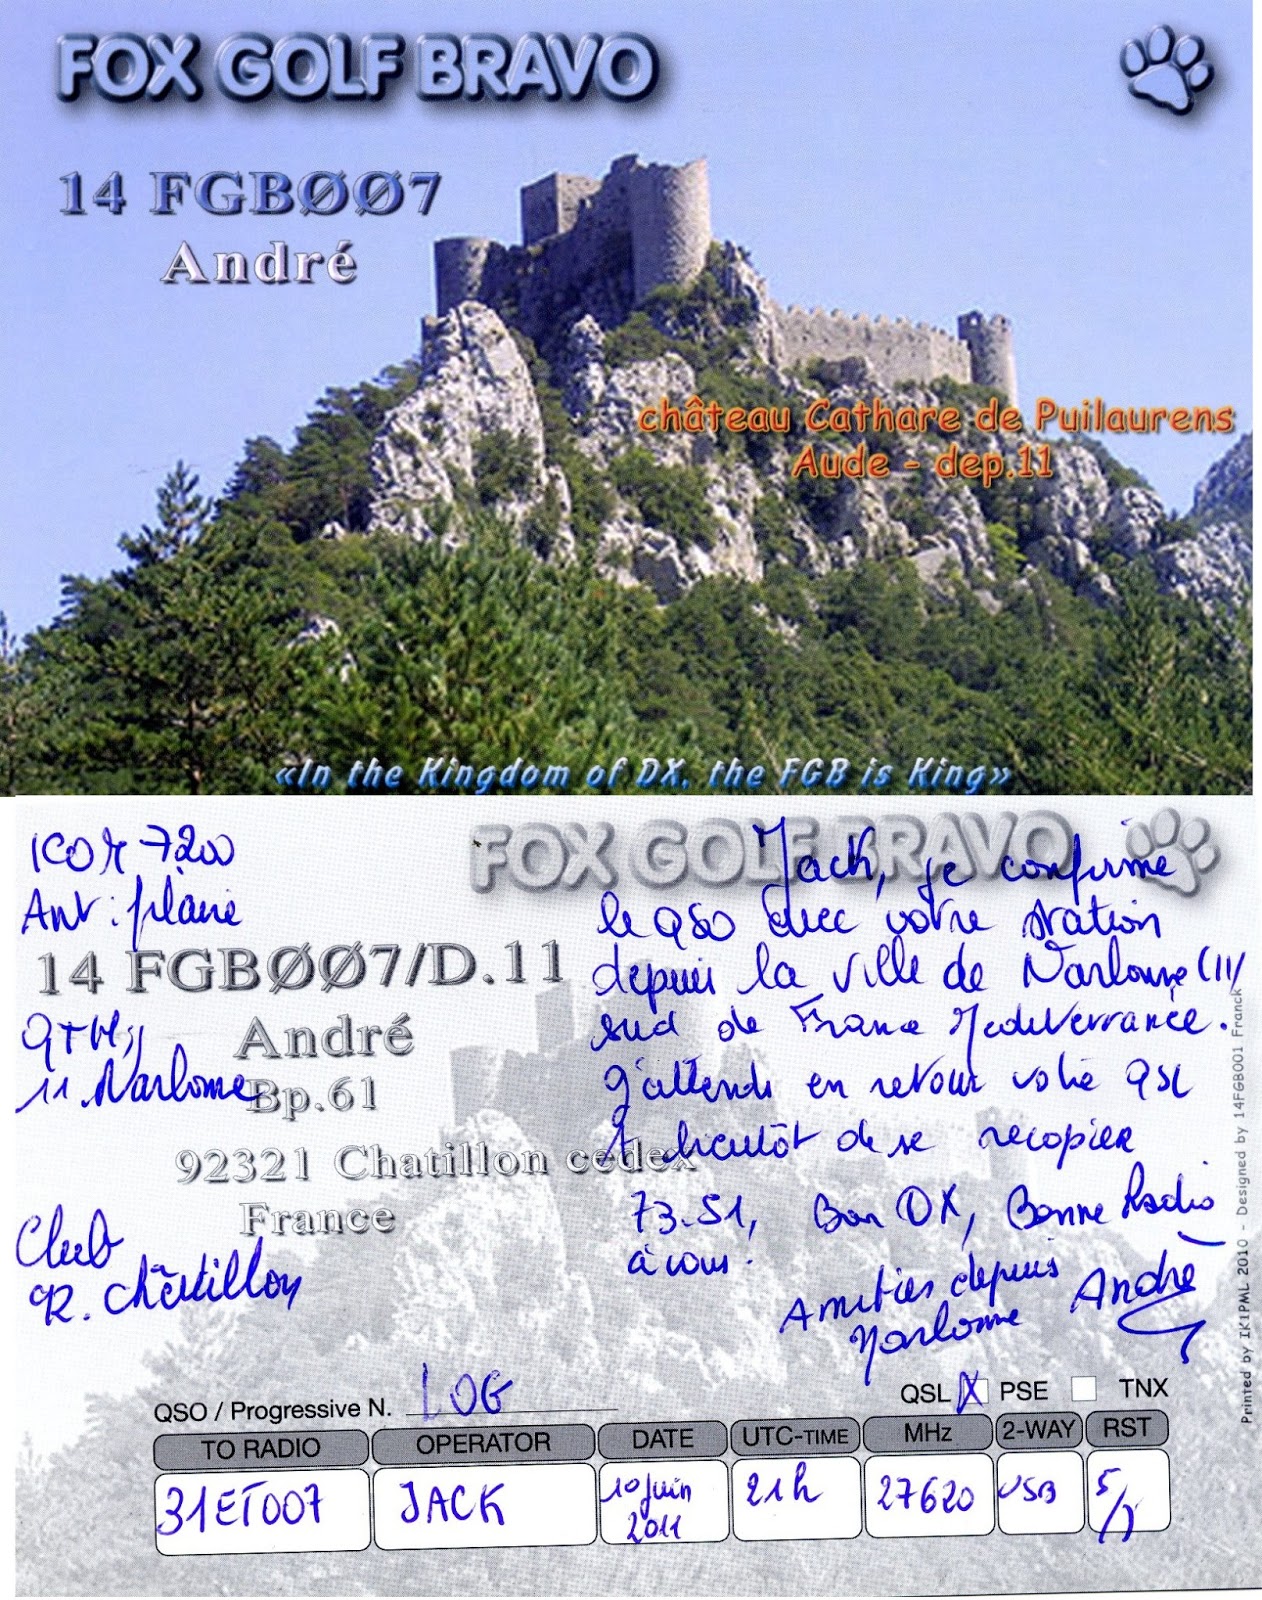 FOX GOLF BRAVO
14 FGBØØ7
André
château Cathare de Puilaurens
Aude - dep.11
«In the Kingdom of DX, the FGB is King»
FOX GOLF BRAVO
ICOM 720
Ant: filaire
14 FGBØØ7/D.11
André
Bp.61
92321 Chatillon cedex
France
QTH,
11 Narbonne
Club
R. Châtillon
Jack, je confirme
le QSO avec votre station
depuis la ville de Narbonne (11)
sud de France Mediterranée.
J'attends en retour votre QSL
A bientôt de se recopier
73.51, Bon DX, Bonne Radio
à vous.
Amitiés depuis
Narbonne André
QSO / Progressive N. LOG
QSL X PSE TNX
TO RADIO OPERATOR DATE UTC-TIME MHz 2-WAY RST
31ET007 JACK 10 juin 2011 21h 27620 USB 5/
Printed by IK1PML 2010 - Designed by 14FGB001 Franck